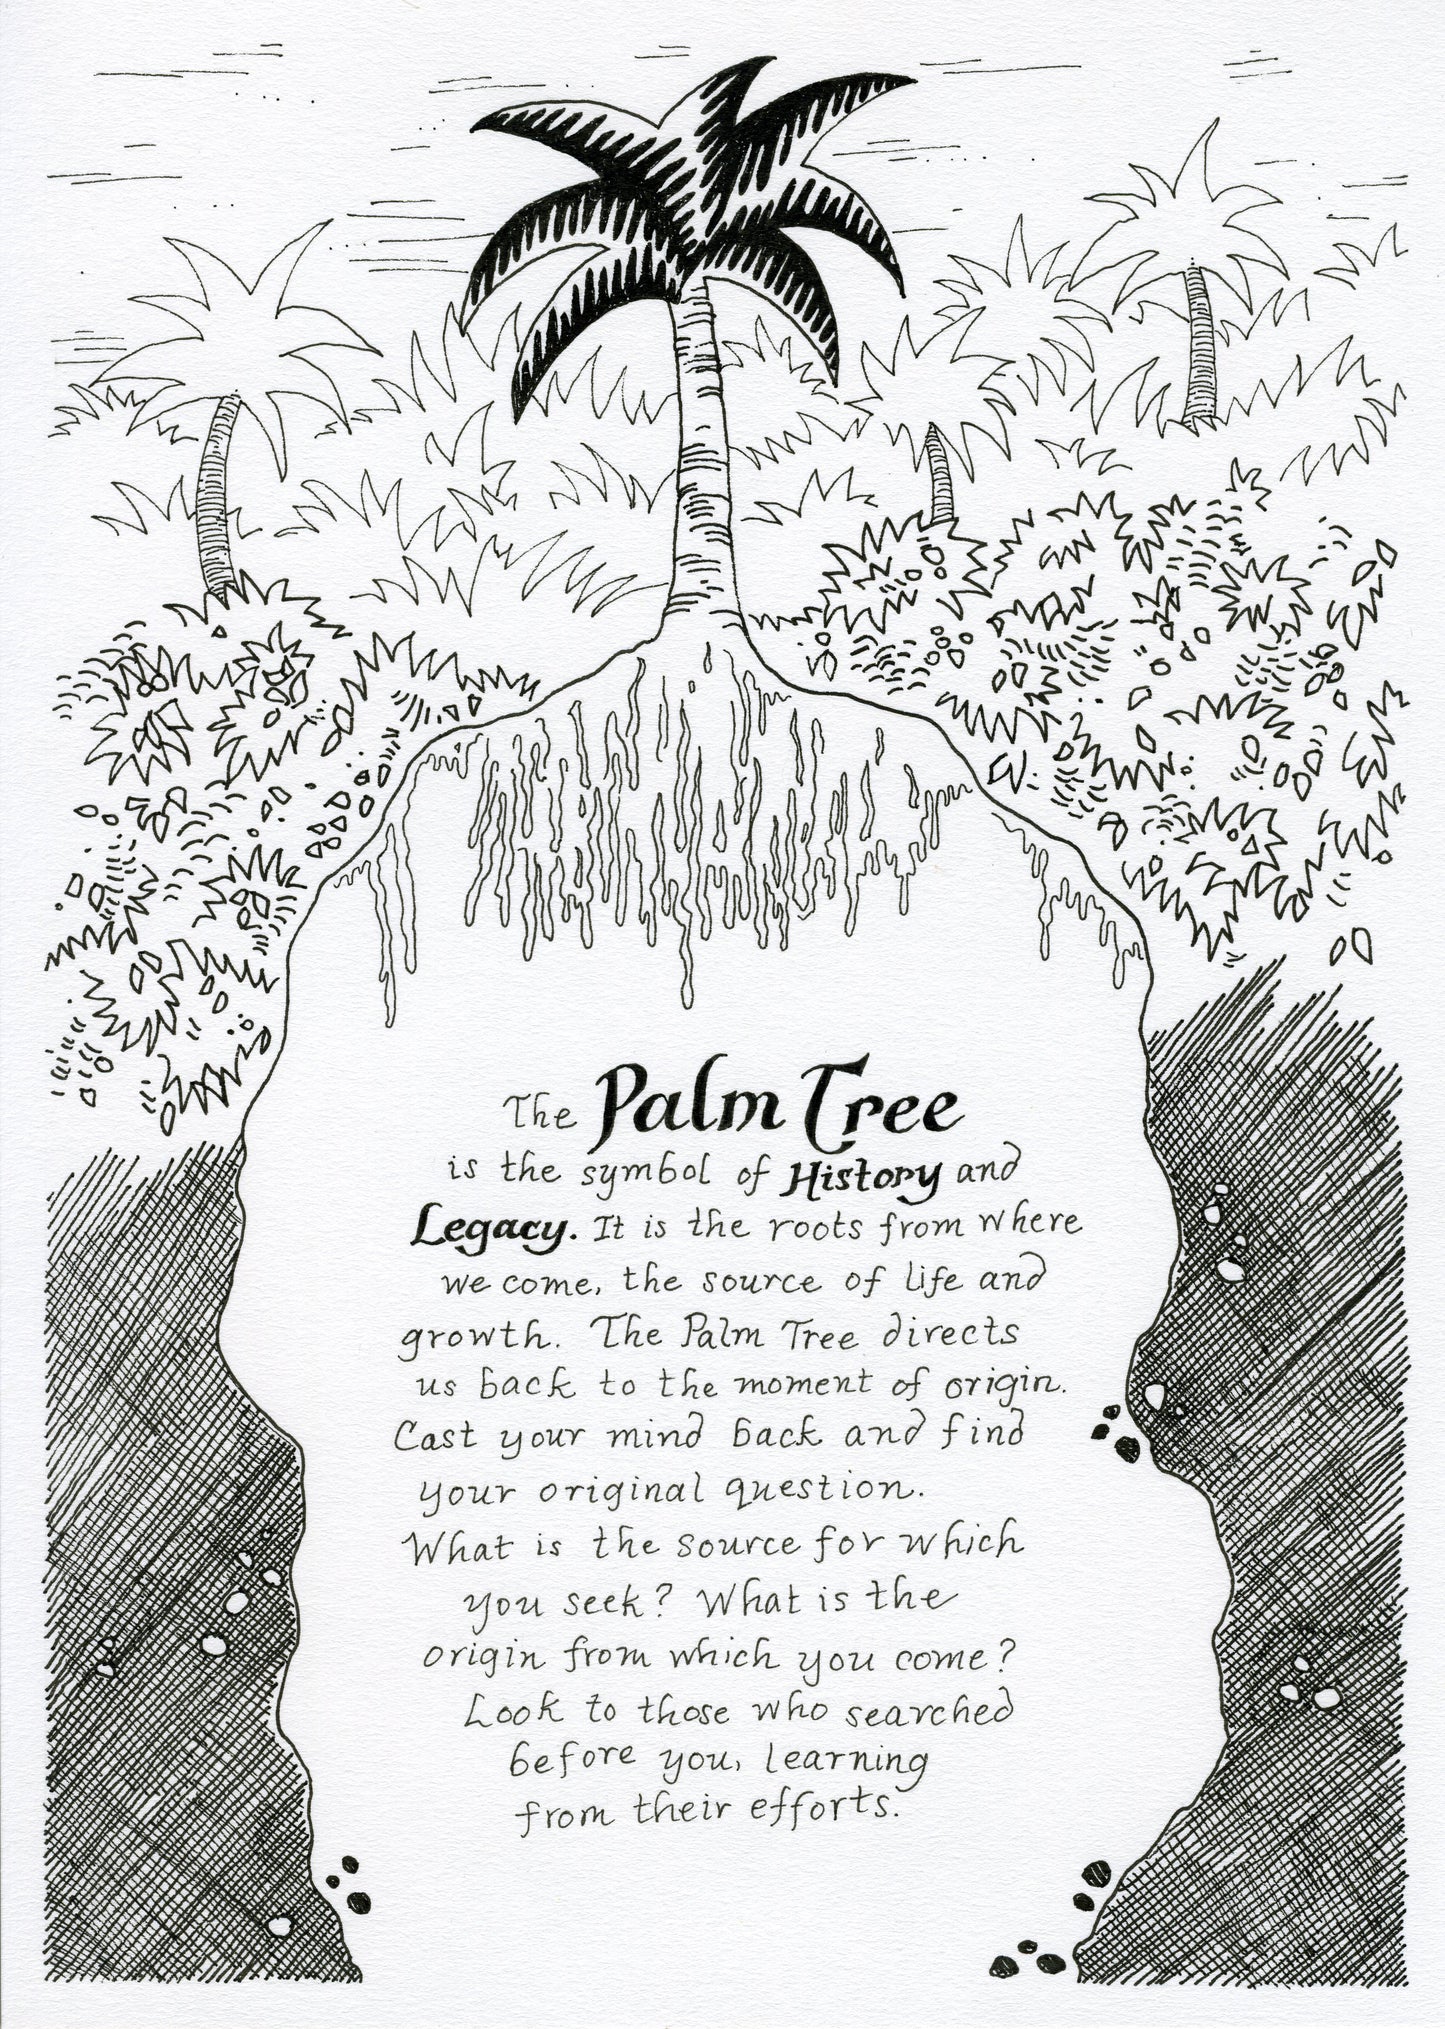 The Palm Tree
is the symbol of History and
Legacy. It is the roots from where
we come, the source of life and
growth. The Palm Tree directs
us back to the moment of origin.
Cast your mind back and find
your original question.
What is the source for which
you seek? What is the
origin from which you come?
Look to those who searched
before you, learning
from their efforts.